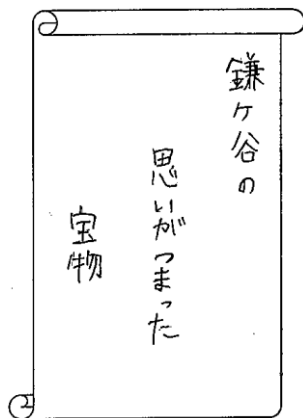 鎌ケ谷の
思いがつまった
宝物